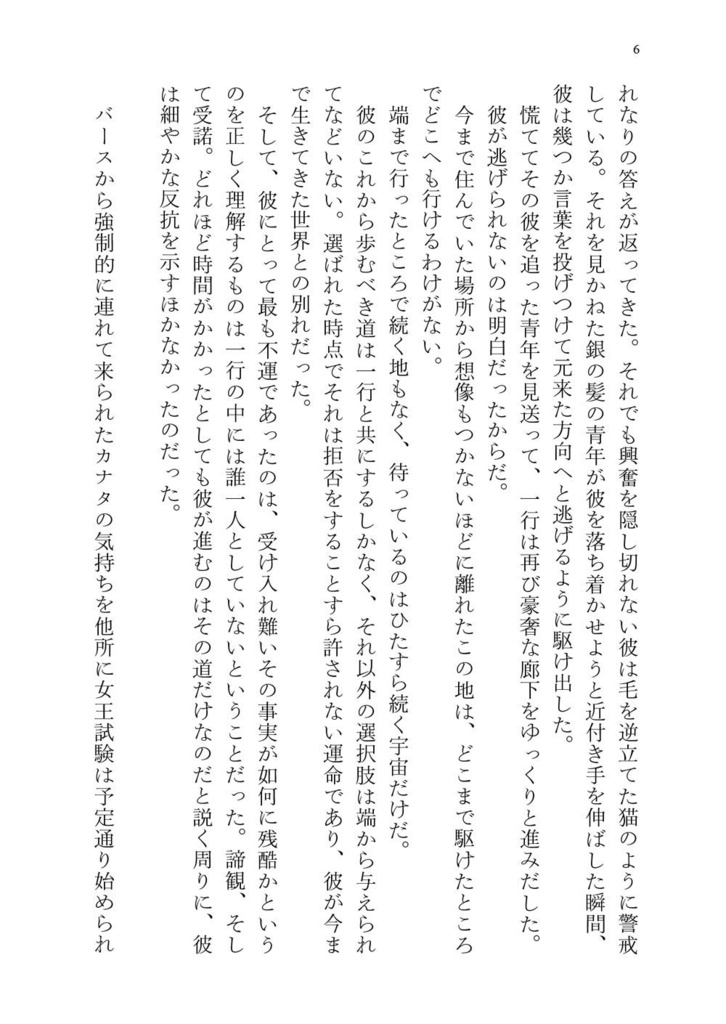 6
れなりの答えが返ってきた。それでも興奮を隠し切れない彼は毛を逆立てた猫のように警戒
している。それを見かねた銀の髪の青年が彼を落ち着かせようと近付き手を伸ばした瞬間、
彼は幾つか言葉を投げつけて元来た方向へと逃げるように駆け出した。
慌ててその彼を追った青年を見送って、一行は再び豪奢な廊下をゆっくりと進みだした。
彼が逃げられないのは明白だったからだ。
今まで住んでいた場所から想像もつかないほどに離れたこの地は、どこまで駆けたところ
でどこへも行けるわけがない。
端まで行ったところで続く地もなく、待っているのはひたすら続く宇宙だけだ。
彼のこれから歩むべき道は一行と共にするしかなく、それ以外の選択肢は端から与えられ
てなどいない。選ばれた時点でそれは拒否をすることすら許されない運命であり、彼が今ま
で生きてきた世界との別れだった。
そして、彼にとって最も不運であったのは、受け入れ難いその事実が如何に残酷かという
のを正しく理解するものは一行の中には誰一人としていないということだった。諦観、そし
て受諾。どれほど時間がかかったとしても彼が進むのはその道だけなのだと説く周りに、彼
は細やかな反抗を示すほかなかったのだった。
バースから強制的に連れて来られたカナタの気持ちを他所に女王試験は予定通り始められ